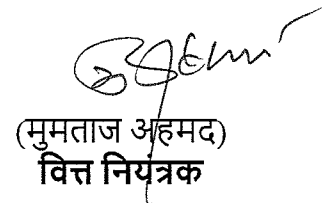 (मुमताज अहमद)
वित्त नियंत्रक